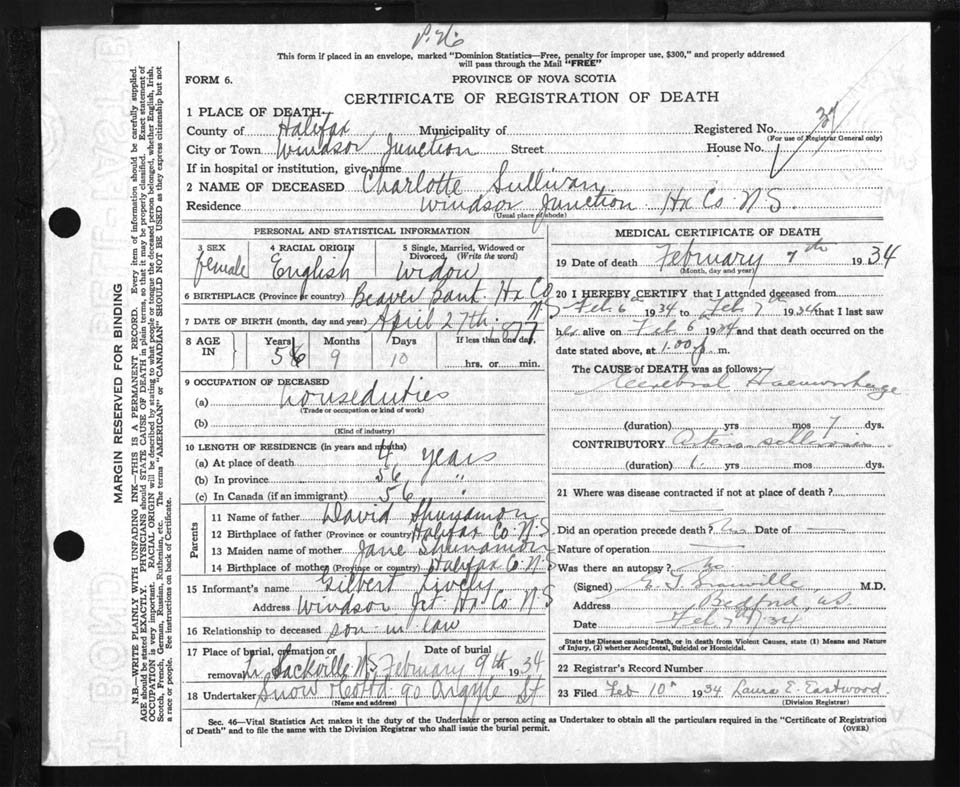 This form if placed in an envelope, marked "Dominion Statistics—Free, penalty for improper use, $300," and properly addressed
will pass through the Mail "FREE"
FORM 6.
PROVINCE OF NOVA SCOTIA
CERTIFICATE OF REGISTRATION OF DEATH
1 PLACE OF DEATH—
County of Halifax Municipality of Registered No. 37
(For use of Registrar General only)
City or Town Windsor Junction Street House No.
If in hospital or institution, give name
2 NAME OF DECEASED Charlotte Sullivan
Residence Windsor Junction Hx Co. N.S.
(Usual place of abode)
PERSONAL AND STATISTICAL INFORMATION
3 SEX female
4 RACIAL ORIGIN English
5 Single, Married, Widowed or Divorced, (Write the word) widow
6 BIRTHPLACE (Province or country) Beaver Bank. Hx Co N.S
7 DATE OF BIRTH (month, day and year) April 27th. 1877
8 AGE IN Years 56 Months 9 Days 10 If less than one day, hrs. or min.
9 OCCUPATION OF DECEASED
(a) houseduties
(Trade or occupation or kind of work)
(b)
(Kind of industry)
10 LENGTH OF RESIDENCE (in years and months)
(a) At place of death 4 years
(b) In province 56 "
(c) In Canada (if an immigrant) 56 "
Parents
11 Name of father David
12 Birthplace of father (Province or country) Halifax Co. N.S
13 Maiden name of mother Jane
14 Birthplace of mother (Province or country) Halifax Co. N.S
15 Informant's name Gilbert Lively
Address Windsor Jct Hx Co N S
16 Relationship to deceased son-in-law
17 Place of burial, cremation or removal Sackville N.S Date of burial February 9th 1934
18 Undertaker Snow 90 Argyle St
(Name and address)
MEDICAL CERTIFICATE OF DEATH
19 Date of death February 7th 1934
(Month, day and year)
20 I HEREBY CERTIFY that I attended deceased from
Feb. 6th 1934 to Feb 7th 1934 that I last saw
her alive on Feb 6 1934 and that death occurred on
date stated above, at 1.00 p. m.
The CAUSE of DEATH was as follows:
Cerebral Haemorrhage
(duration) yrs mos dys.
CONTRIBUTORY
(duration) yrs mos dys.
21 Where was disease contracted if not at place of death?
Did an operation precede death? No Date of —
Nature of operation —
Was there an autopsy? No
(Signed) M.D.
Address Bedford, N.S
Date Feb 7th/34
State the Disease causing Death, or in death from Violent Causes, state (1) Means and Nature
of Injury, (2) whether Accidental, Suicidal or Homicidal.
22 Registrar's Record Number
23 Filed Feb 10th 1934 Laura E. Eastwood
(Division Registrar)
Sec. 46—Vital Statistics Act makes it the duty of the Undertaker or person acting as Undertaker to obtain all the particulars required in the "Certificate of Registration
of Death" and to file the same with the Division Registrar who shall issue the burial permit.
(OVER)
MARGIN RESERVED FOR BINDING
N.B.—WRITE PLAINLY WITH UNFADING INK—THIS IS A PERMANENT RECORD. Every item of information should be carefully supplied.
AGE should be stated EXACTLY. PHYSICIANS should STATE CAUSE OF DEATH in plain terms, so that it may be properly classified. Exact statement of
OCCUPATION is very important. RACIAL ORIGIN will be described by stating to what people or tongue the deceased person belonged, whether English, Irish,
Scotch, French, German, Russian, Ruthenian, etc. The terms "AMERICAN" or "CANADIAN" SHOULD NOT BE USED as they express citizenship but not
a race or people. See instructions on back of Certificate.